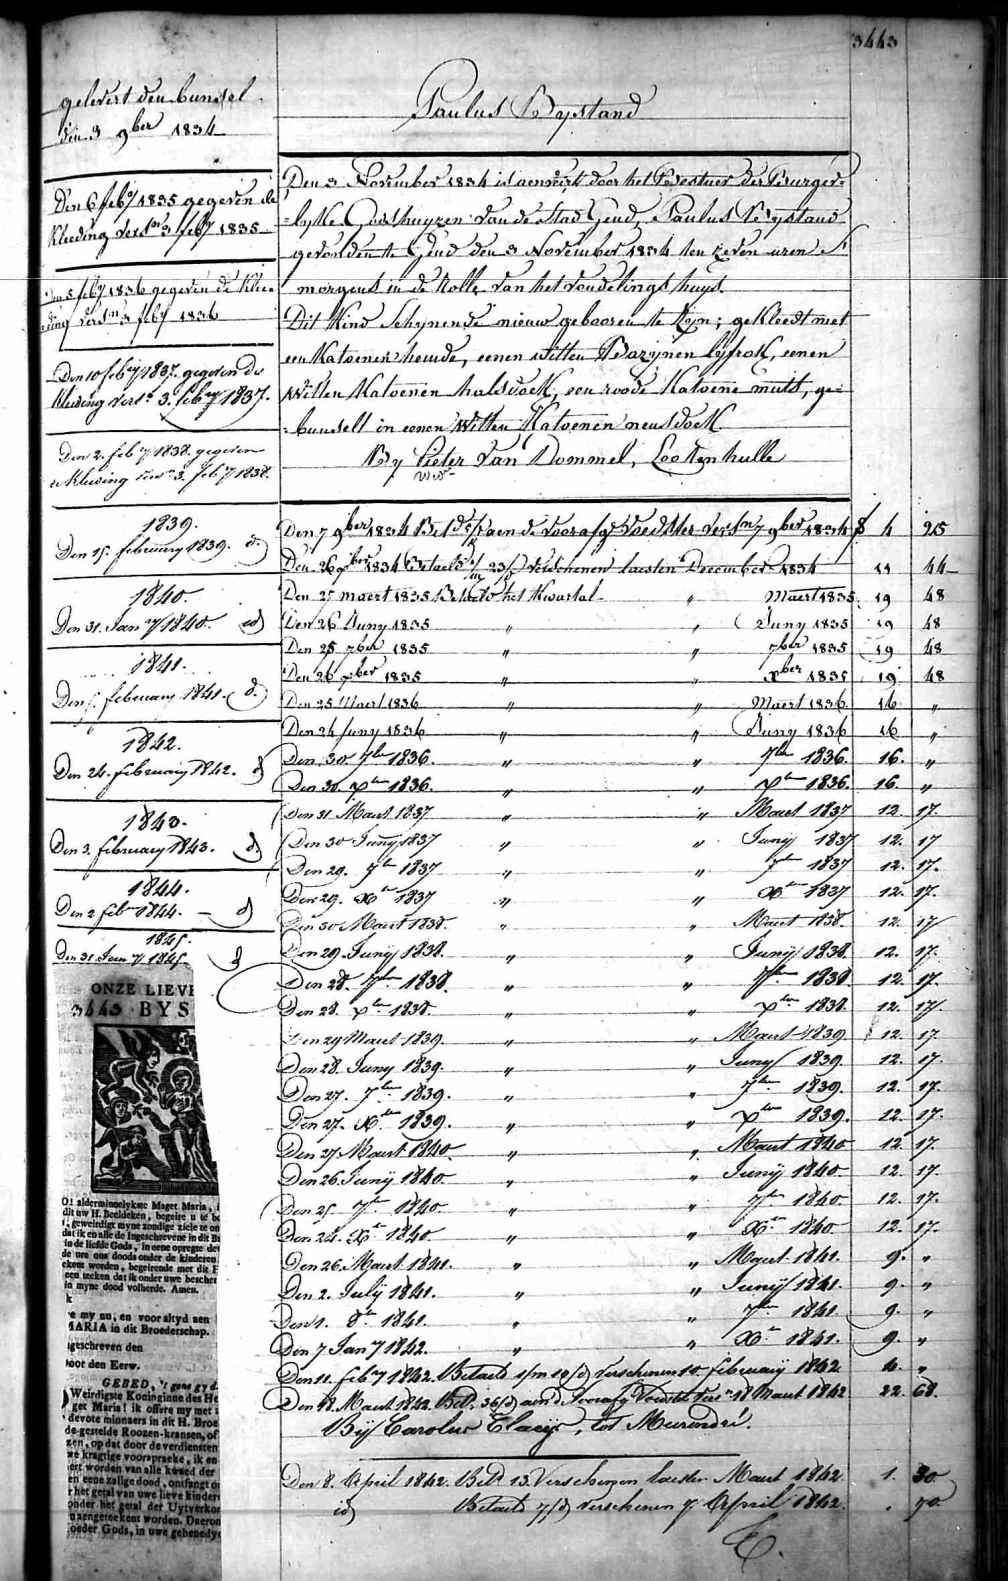 3443
gelevert den bundel
den 3 9ber 1834
Den 6 feby 1835 gegeven de
kleeding versn 3 feby 1835
Den 5 feby 1836 gegeven de klee-
ding versn 3 feby 1836
Den 10 feby 1837. gegeven de
kleeding versn 3. feby 1837.
Den 2. feby 1838. gegeven
de kleeding versn 3. feby 1838.
1839.
Den 15. february 1839. d.
1840.
Den 31. Jany 1840. id
1841.
Den 5. february 1841. d.
1842.
Den 24. february 1842. d
1843.
Den 3. february 1843. d.
1844.
Den 2 febr 1844. — d
1845.
Den 31 Jany 1845. d
ONZE LIEVE
3443 BYS
O! alderminnelykste Maget Maria,
dit uw H. Beeldeken, begeire u te
geweirdigt myne zondige ziele te on
dat ik en alle de Ingeschrevene in dit
in de liefde Gods, in eene opregte
de ure ons doods onder de kinderen
ekent worden, begeirende met dit
een teeken dat ik onder uwe bescher
in myne dood volherde. Amen.
k
e my nu, en voor altyd aen
MARIA in dit Broederschap.
geschreven den
oor den Eerw.
GEBED, 't gene gy d
Weirdigste Koninginne des He
get Maria! ik offere my met
devote minnaers in dit H. Broe
de gestelde Roozen-kransen, of
zen, op dat door de verdiensten
we kragtige voorspraeke, ik en
ert worden van alle kwaed der
en eene zalige dood, ontfangt o
r het getal van uwe lieve kinders
onder het getal der Uytverkor
n aengeteekent worden. Daerom
oeder Gods, in uwe gebenedye
Paulus Bystand
Den 3 November 1834 is aenveirt door het Bestuer der Burger-
-lyke Godshuyzen van de Stad Gend, Paulus Bystand
gevonden te Gend den 3 November 1834 ten zeven uren s'
morgens in de Rolle van het vondelingshuys.
Dit Kind Schynende nieuw gebooren te zyn; gekleedt met
een Katoenen hemde, eenen witten Bazynen lyfrok, eenen
witten Katoenen halsdoek, een roode Katoene muts, ge-
-bundelt in eenen Witten Katoenen neusdoek.
By Pieter Van Dommel, Lootenhulle
wed
Den 7 9ber 1834 Betd aen de voorafge voedster versn 7 9ber 1834 f 4 25
Den 26 xber 1834 Betaelt 1/m 23/d verschenen laesten December 1834 11 44
Den 25 maert 1835 Betaeld het Kwartal " Maert 1835 19 48
Den 26 Juny 1835 " " Juny 1835 19 48
Den 25 7ber 1835 " " 7ber 1835 19 48
Den 26 xber 1835 " " xber 1835 19 48
Den 25 Maert 1836 " " Maert 1836 16 "
Den 24 Juny 1836 " " Juny 1836 16 "
Den 30 7ber 1836. " " 7ber 1836. 16. "
Den 30. xber 1836. " " xber 1836. 16. "
Den 31 Maert 1837 " " Maert 1837 12. 17.
Den 30 Junij 1837 " " Junij 1837 12. 17
Den 29. 7ber 1837 " " 7ber 1837 12. 17.
Den 29. Xber 1837 " " Xber 1837 12. 17.
Den 30 Maert 1838. " " Maert 1838. 12. 17
Den 29. Junij 1838. " " Junij 1838. 12. 17.
Den 28. 7ber 1838. " " 7ber 1838 12. 17.
Den 28. xber 1838. " " xber 1838. 12. 17.
Den 29 Maert 1839. " " Maert 1839 12. 17.
Den 28. Juny 1839. " " Juny 1839. 12. 17.
Den 27. 7ber 1839. " " 7ber 1839. 12. 17.
Den 27. Xber 1839. " " xber 1839. 12. 17.
Den 27 Maert 1840. " " Maert 1840 12. 17.
Den 26. Junij 1840. " " Junij 1840. 12. 17.
Den 25. 7ber 1840. " " 7ber 1840. 12. 17.
Den 24. Xber 1840 " " Xber 1840. 12. 17.
Den 26. Maert 1841. " " Maert 1841. 9. "
Den 2. Julij 1841. " " Junij 1841. 9. "
Den 1. 8ber 1841. " " 7ber 1841 9. "
Den 7 Jany 1842. " " Xber 1841. 9. "
Den 11. feby 1842. Betaeld 1/m 10/d verschenen 10 february 1842 4. "
Den 18. Maert 1842. Betd 36/d aen d'voorafg Voedstr versn 18 Maert 1842 22. 68.
Bij Carolus Claeijs, tot Meirendré.
Den 8. April 1842. Betd 13. Verschenen laesten Maert 1842 1. 30
id Betaeld 7/d verschenen 7 April 1842. . 70.